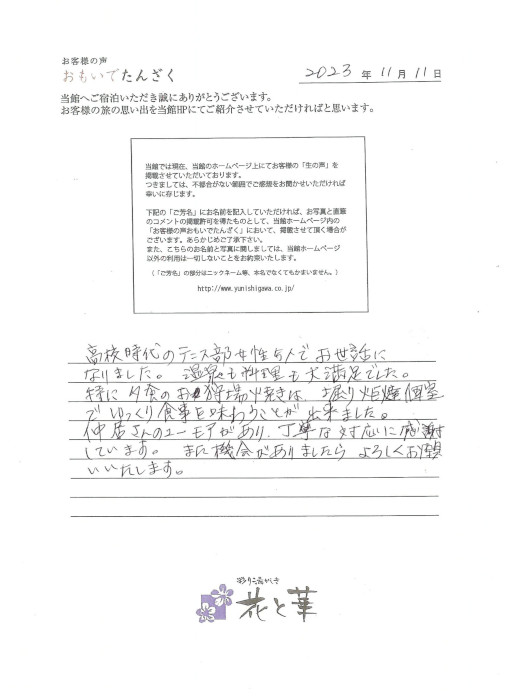 お客様の声
おもいでたんざく
2023 年 11 月 11 日
当館へご宿泊いただき誠にありがとうございます。
お客様の旅の思い出を当館HPにてご紹介させていただければと思います。
当館では現在、当館のホームページ上にてお客様の「生の声」を
掲載させていただいております。
つきましては、不都合がない範囲でご感想をお聞かせいただければ
幸いに存じます。
下記の「ご芳名」にお名前を記入していただければ、お写真と直筆
のコメントの掲載許可を得たものとして、当館ホームページ内の
「お客様の声おもいでたんざく」において、掲載させて頂く場合が
ございます。あらかじめご了承下さい。
また、こちらのお名前と写真に関しましては、当館ホームページ
以外の利用は一切しないことをお約束いたします。
（「ご芳名」の部分はニックネーム等、本名でなくてもかまいません。）
http://www.yunishigawa.co.jp/
高校時代のテニス部女性5人でお世話に
なりました。 温泉も料理も大満足でした。
特に夕食のお狩場焼きは、掘り炬燵個室
でゆっくり食事を味わうことが出来ました。
仲居さんのユーモアがあり、丁寧な対応に感謝
しています。 また機会がありましたら よろしくお願
いいたします。
彩り湯かしき
花と華